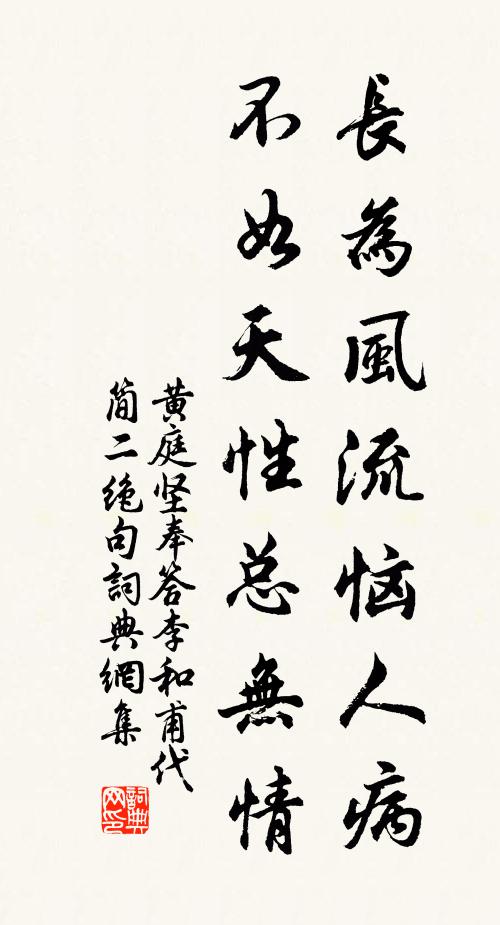 長為風流恼人病
不如天性总無情
黄庭坚奉答李和甫代
简二绝句詞典網集
詞典
网印